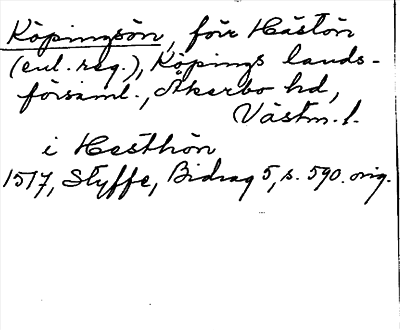 Köpingsön, förr Hästön
(enl. reg.), Köpings lands-
församl., Åkerbo hd,
Västm. l.
i Hesthön
1517, Styffe, Bidrag 5, s. 590. orig.